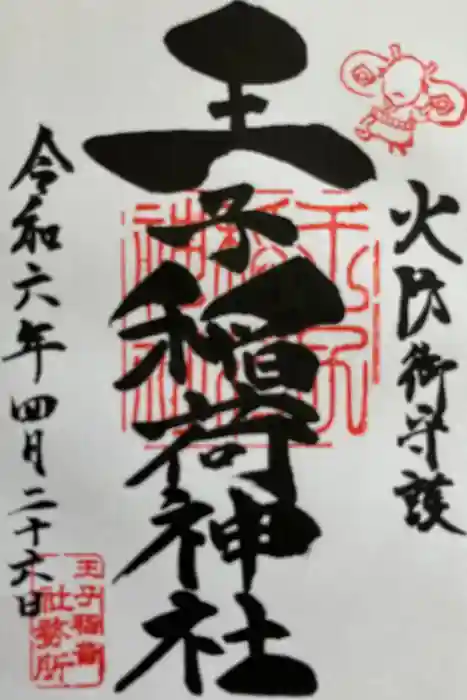 火防御守護
王子稲荷神社
令和六年四月二十六日
王子稲荷
社務所